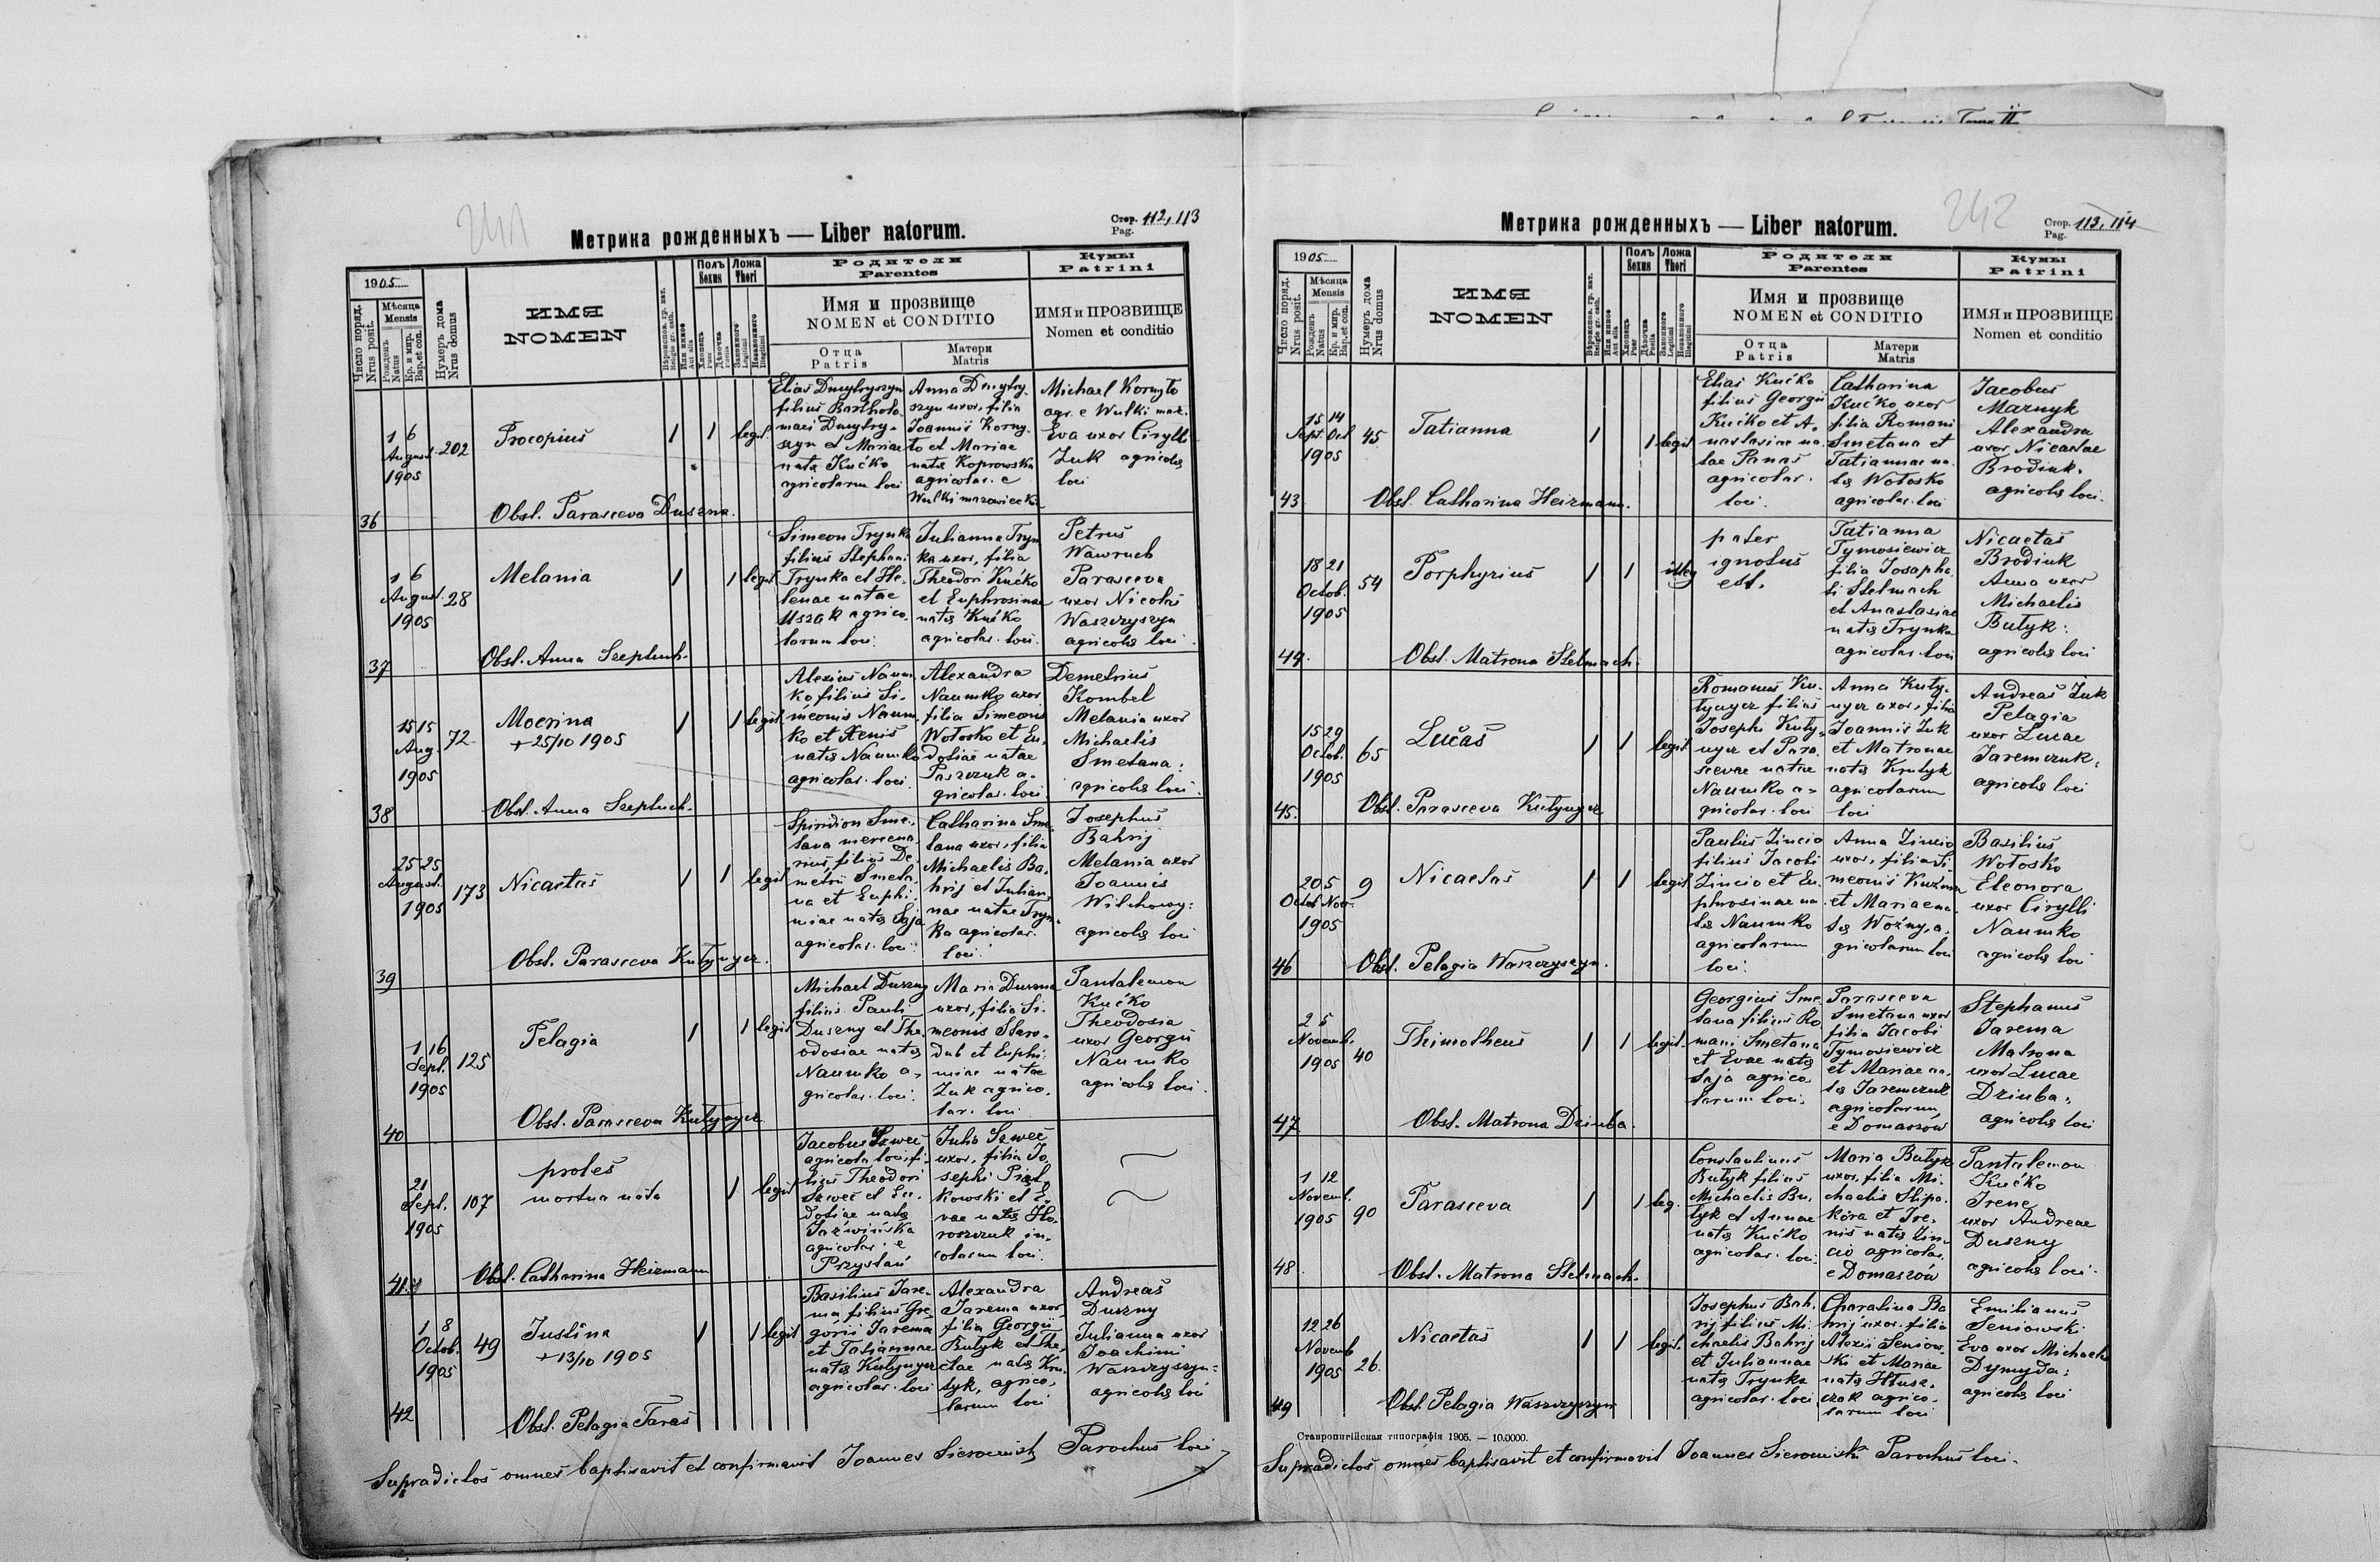 241
Метрика рожденныхъ — Liber natorum.
Стор. 112, 113
Pag.
1905
Число поряд.
Nrus posit.
Мѣсяца
Mensis
Рожденъ
Natus
Кр. и мир.
Bap. et con.
Нумеръ дома
Nrus domus
ИМЯ
NOMEN
Вѣроиспов. гр. кат.
Religio gr. cath.
Или иное
Aut alia
Полъ
Sexus
Хлопецъ
Puer
Дѣвочка
Puella
Ложа
Thori
Законного
Legitimi
Незаконного
Illegitimi
Родители
Parentes
Имя и прозвище
NOMEN et CONDITIO
Отца
Patris
Матери
Matris
Кумы
Patrini
ИМЯ и ПРОЗВИЩЕ
Nomen et conditio
36
1 6
August.
1905
202
Procopius
1 1 legit.
Elias Dmytryszyn
filius Bartholo-
maei Dmytry-
szyn et Mariae
natae Kućko
agricolarum loci
Anna Dmytry-
szyn uxor, filia
Joannis Korny-
to et Mariae
natae Koprowska
agricolar. e
Wulki mazowiecka
Michael Kornyto
agr. e Wulki maz.
Eva uxor Cirylli
Żuk agricolae
loci
Obst. Parasceva Duszna.
37
1 6
August.
1905
28
Melania
1 1 legit
Simeon Trynka
filius Stephani
Trynka et He-
lenae natae
Uszak agrico-
larum loci.
Julianna Tryn-
ka uxor, filia
Theodori Kućko
et Euphrosinae
natae Kućko
agricolar. loci.
Petrus
Wawruch
Parasceva
uxor Nicolai
Waszczyszyn
agricolae loci.
Obst. Anna Szeptuch.
38
15 15
Aug.
1905
72
Mocrina
+ 25/10 1905
1 1 legit
Alexius Naum-
ko filius Si-
meonis Naum-
ko et Xenis
natae Naumko
agricolar. loci.
Alexandra
Naumko uxor
filia Simeonis
Wołosko et Eu-
dosiae natae
Paszczuk a-
gricolar. loci.
Demetrius
Kombel
Melania uxor
Michaelis
Smetana:
agricolae loci.
Obst. Anna Szeptuch.
39
25 25
August.
1905
173
Nicaetas
1 1 legit
Spiridion Sme-
tana mercena-
rius, filius De-
metrii Smeta-
na et Euphi-
miae natae Saja
agricolar. loci.
Catharina Sme-
tana uxor, filia
Michaelis Ba-
hrij et Julian-
nae natae Tryn-
ka agricolar.
loci.
Josephus
Bahrij
Melania uxor
Joannis
Wilchowy:
agricolae loci
Obst. Parasceva Kutynycz.
40
1 16
Sept.
1905
125
Pelagia
1 1 legit
Michael Duszny
filius Pauli
Duszny et The-
odosiae natae
Naumko a-
gricolar. loci.
Maria Duszna
uxor, filia Si-
meonis Staro-
dub et Euphi-
miae natae
Żuk agrico-
lar. loci
Pantalemon
Kućko
Theodosia
uxor Georgii
Naumko
agricolae loci.
Obst. Parasceva Kutynycz
41
21
Sept.
1905
107
proles
mortua nata
1 legit
Jacobus Szweć
agricola loci, fi-
lius Theodori
Szweć et Eu-
dosiae natae
Jaźwińska
agricolar. e
Przystań
Julia Szweć
uxor, filia Jo-
sephi Piąt-
kowski et E-
vae natae Ho-
roszczuk in-
colarum loci.
Obst. Catharina Heizmann
42
1 8
Octob.
1905
49
Justina
+ 13/10 1905
1 1 legit
Basilius Jare-
ma filius Gre-
gorii Jarema
et Tatiannae
natae Kutynycz
agricolar. loci
Alexandra
Jarema uxor
filia Georgii
Butyk et The-
clae natae Kru-
tyk, agrico-
larum loci
Andreas
Duszny
Julianna uxor
Joachimi
Waszczyszyn:
agricolae loci
Obst. Pelagia Taras
Supradictos omnes baptisavit et confirmavit Joannes Sieromski Parochus loci
242
Метрика рожденныхъ — Liber natorum.
Стор. 113, 114
Pag.
1905
Число поряд.
Nrus posit.
Мѣсяца
Mensis
Рожденъ
Natus
Кр. и мир.
Bap. et con.
Нумеръ дома
Nrus domus
ИМЯ
NOMEN
Вѣроиспов. гр. кат.
Religio gr. cath.
Или иное
Aut alia
Полъ
Sexus
Хлопецъ
Puer
Дѣвочка
Puella
Ложа
Thori
Законного
Legitimi
Незаконного
Illegitimi
Родители
Parentes
Имя и прозвище
NOMEN et CONDITIO
Отца
Patris
Матери
Matris
Кумы
Patrini
ИМЯ и ПРОЗВИЩЕ
Nomen et conditio
43.
15 14
Sept. Oct
1905
45
Tatianna
1 1 legit
Elias Kućko
filius Georgii
Kućko et A-
nastasiae na-
tae Panas
agricolar.
loci.
Catharina
Kućko uxor
filia Romani
Smetana et
Tatiannae na-
tae Wołosko
agricolar. loci
Jacobus
Maznyk
Alexandra
uxor Nicaetae
Brodiuk.
agricolae loci.
Obst. Catharina Heizmann.
44.
18 21
Octob.
1905
54
Porphyrius
1 1 illeg
pater
ignotus
est.
Tatianna
Tymosiewicz
filia Josapha-
ti Stelmach
et Anastasiae
natae Trynka
agricolar. loci
Nicaetas
Brodiuk
Anna uxor
Michaelis
Butyk:
agricolae loci
Obst. Matrona Stelmach.
45.
15 29
Octob.
1905
65
Lucas
1 1 legit
Romanus Ku-
tynycz filius
Josephi Kuty-
nycz et Para-
scevae natae
Naumko a-
gricolar. loci
Anna Kuty-
nycz uxor, filia
Joannis Żuk
et Matronae
natae Krutyk
agricolarum
loci
Andreas Żuk
Pelagia
uxor Lucae
Jaremczuk:
agricolae loci
Obst. Parasceva Kutynycz
46
20 5
Octob Nov.
1905
9
Nicaetas
1 1 legit
Paulus Zincio
filius Jacobi
Zincio et Eu-
phrosinae na-
tae Naumko
agricolarum
loci.
Anna Zincio
uxor, filia Si-
meonis Kuźma
et Mariae na-
tae Woźny, a-
gricolarum loci
Basilius
Wołosko
Eleonora
uxor Cirylli
Naumko
agricolae loci
Obst. Pelagia Waszczyszyn.
47
2 5
Novemb.
1905
40
Thimotheus
1 1 legit.
Georgius Sme-
tana filius Ro-
mani Smetana
et Evae natae
Saja agrico-
larum loci.
Parasceva
Smetana uxor
filia Jacobi
Tymosiewicz
et Mariae na-
tae Jaremczuk
agricolarum
e Domaszow
Stephanus
Jarema
Matrona
uxor Lucae
Dziuba:
agricolae loci
Obst. Matrona Dziuba.
48
1 12
Novemb.
1905
90
Parasceva
1 1 leg.
Constantinus
Butyk filius
Michaelis Bu-
tyk et Annae
natae Kućko
agricolar. loci
Maria Butyk
uxor, filia Mi-
chaelis Slipo-
kóra et Ire-
nis natae Zin-
cio agricolar.
e Domaszów
Pantalemon
Kućko
Irene
uxor Andreae
Duszny
agricolae loci.
Obst. Matrona Stelmach.
49
12 26
Novemb
1905
26.
Nicaetas
1 1 legit.
Josephus Bah-
rij filius Mi-
chaelis Bahrij
et Juliannae
natae Trynka
agricolar. loci
Charatina Ba-
hrij uxor. filia
Alexii Seniow-
ski et Mariae
natae Hłusz-
czak agrico-
larum loci
Emilianus
Seniowski
Eva uxor Michaelis
Dymyda:
agricolae loci
Obst. Pelagia Waszczyszyn
Ставропигійская типографія 1905. — 10.0000.
Supradictos omnes baptisavit et confirmavit Joannes Sieromski Parochus loci.